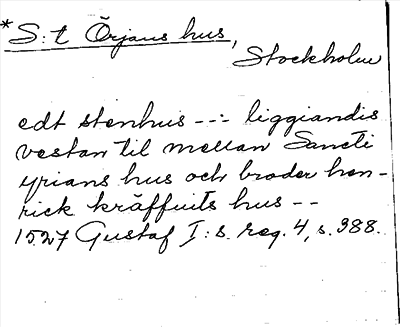 *S:t Örjans hus,
Stockholm
edt stenhus --:- liggiandis
vestan til mellan Sancti
yrians hus och broder hen-
rick kräffuits hus --
1527 Gustaf I:s. reg. 4, s. 388.